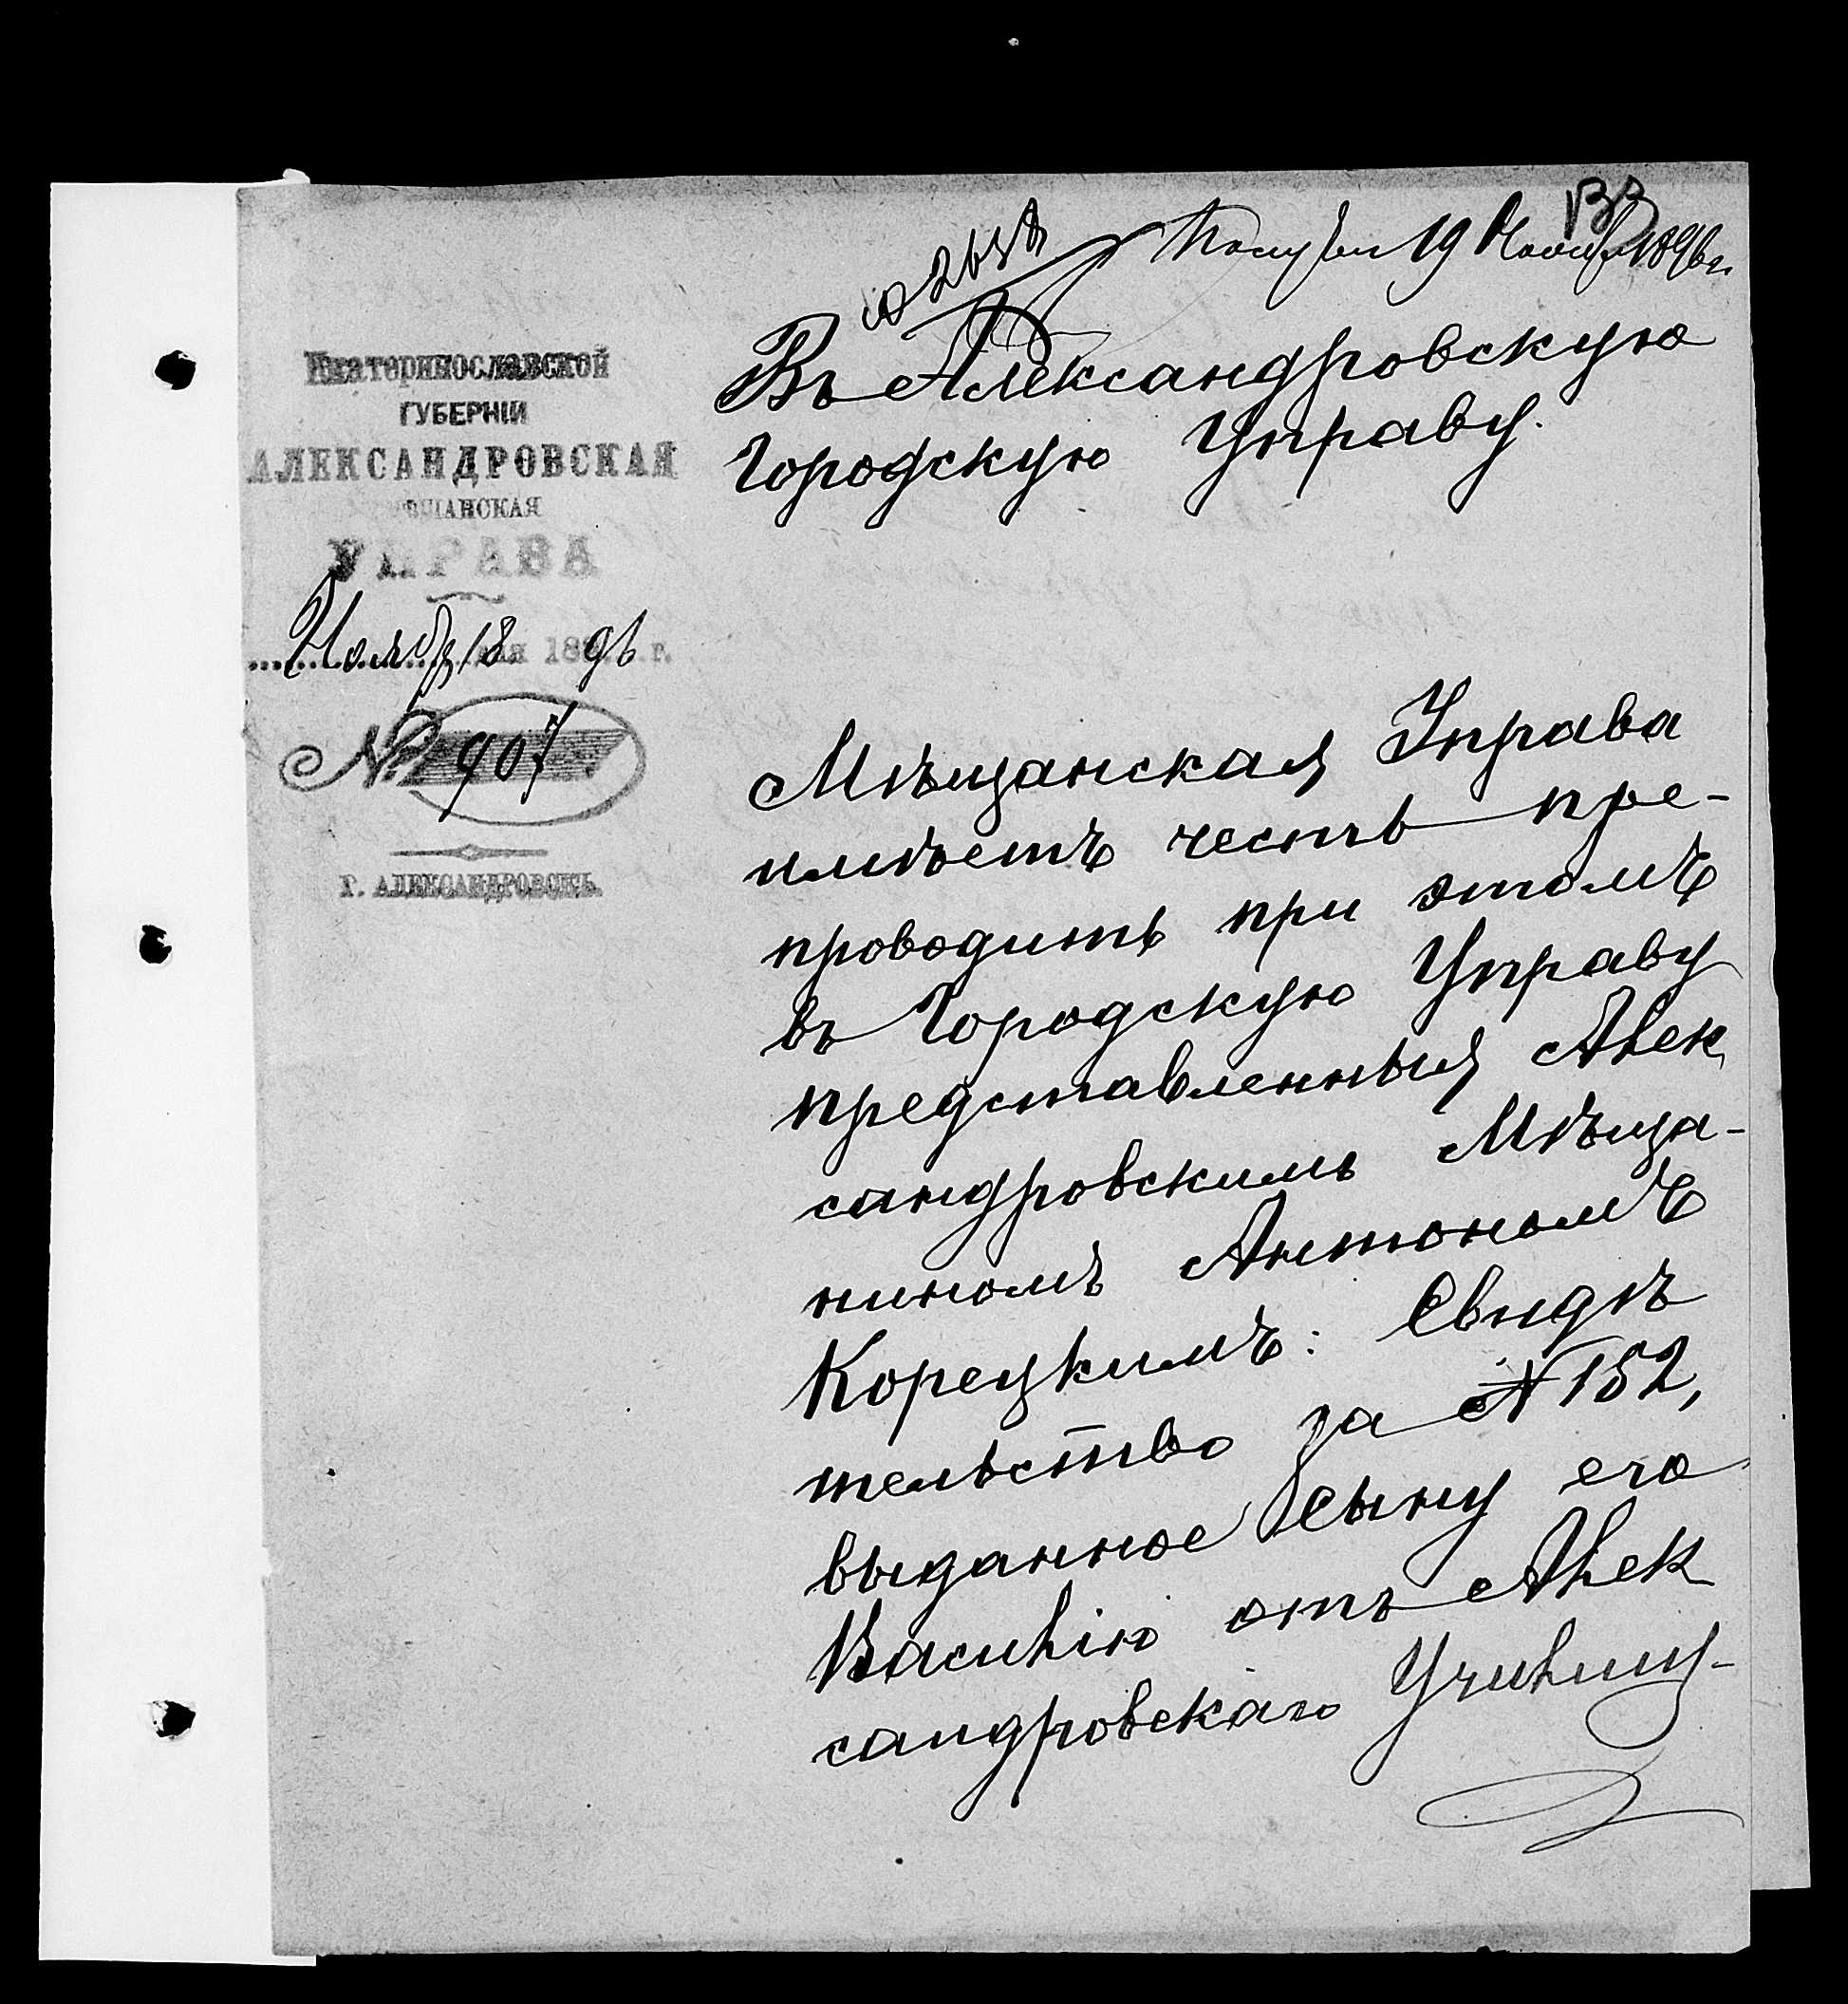 133
Получен 19 Ноября 1896 г.
Екатеринославской
ГУБЕРНІИ
АЛЕКСАНДРОВСКАЯ
МѢЩАНСКАЯ
УПРАВА
Ноября 18 дня 1896 г.
№ 907
Г. АЛЕКСАНДРОВСКЪ.
Въ Александровскую
Городскую Управу.
Мѣщанская Управа
имѣетъ честь пре-
проводить при этомъ
въ Городскую Управу
представленныя Алек
сандровскимъ Мѣща-
ниномъ Антономъ
Корецкимъ: Свидѣ
тельство за № 152,
выданное Сыну его
Василію отъ Алек
сандровскаго Училищ-